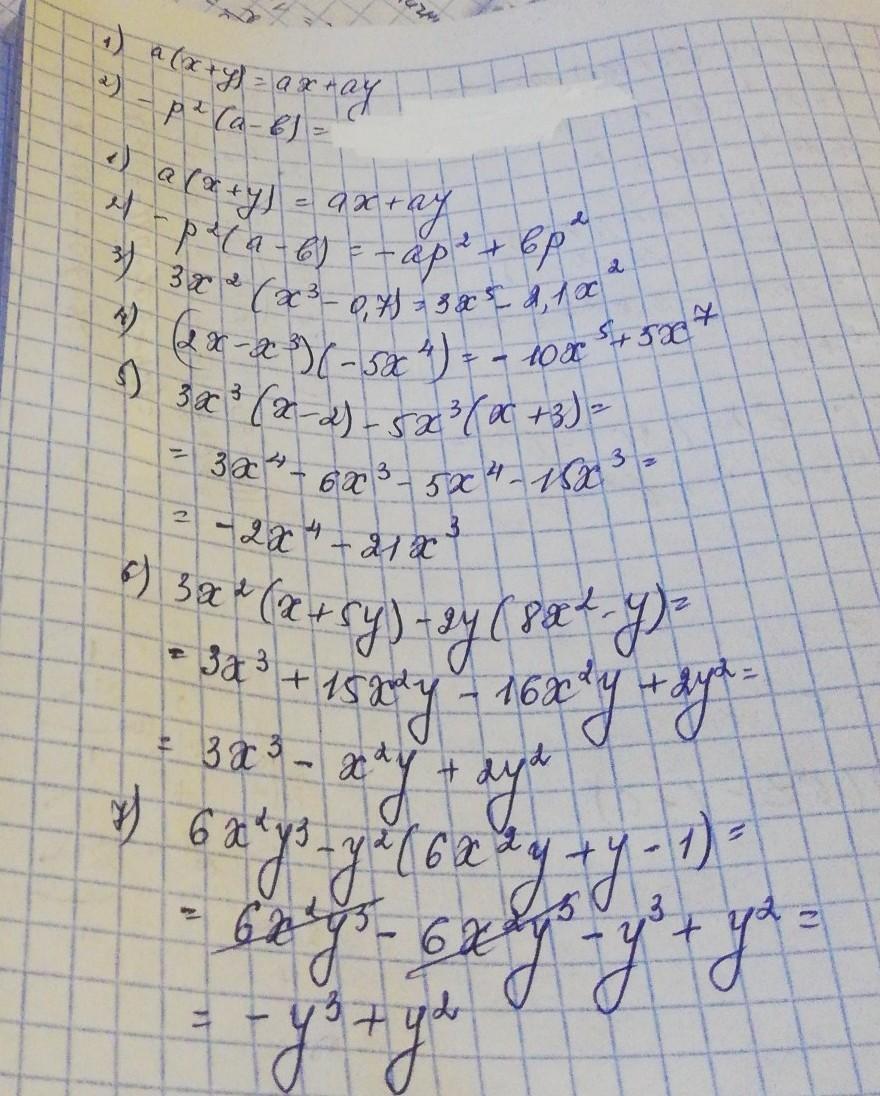 1) a(x+y) = ax+ay
2) -p²(a-b) =
1) a(x+y) = ax+ay
2) -p²(a-b) = -ap² + bp²
3) 3x²(x³-0,7) = 3x⁵ - 2,1x²
4) (2x-x³)(-5x⁴) = -10x⁵+5x⁷
5) 3x³(x-2)-5x³(x+3)=
= 3x⁴-6x³-5x⁴-15x³=
= -2x⁴-21x³
6) 3x²(x+5y)-2y(8x²-y)=
= 3x³+15x²y-16x²y+2y²=
= 3x³-x²y+2y²
7) 6x²y³-y²(6x²y+y-1)=
= 6x²y³-6x²y³-y³+y²=
= -y³+y²